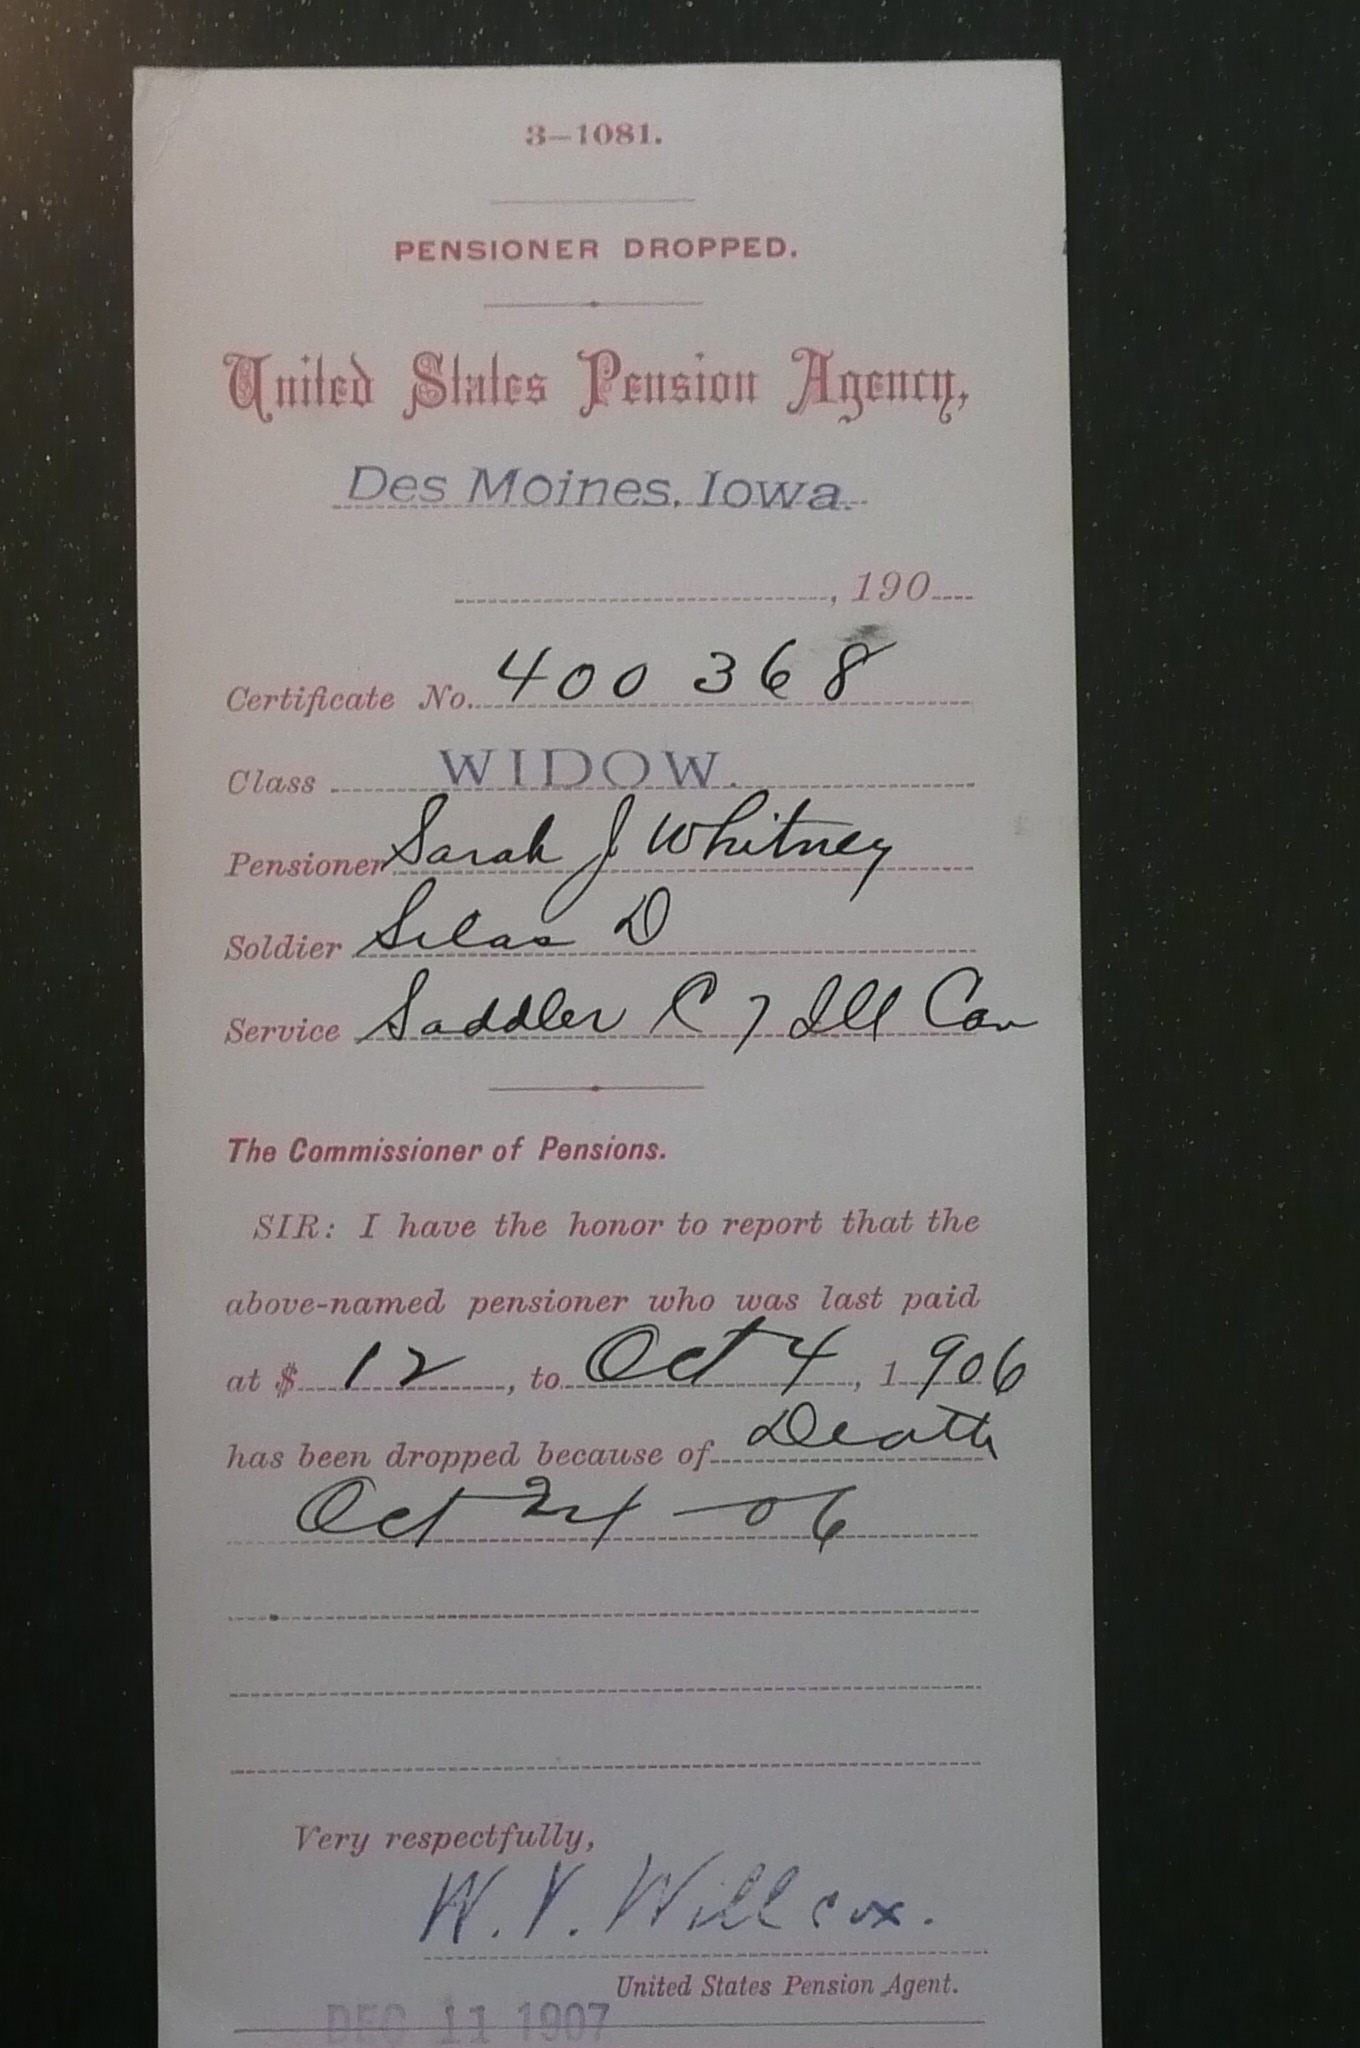 3—1081.
PENSIONER DROPPED.
United States Pension Agency,
Des Moines, Iowa.
, 190
Certificate No. 400 368
Class WIDOW.
Pensioner Sarah J Whitney
Soldier Silas D
Service Saddler C 7 Ill Cav
The Commissioner of Pensions.
SIR: I have the honor to report that the
above-named pensioner who was last paid
at $ 12, to Oct 4, 1906
has been dropped because of Death
Oct 24 - 06
Very respectfully,
W. V. Willcox.
United States Pension Agent.
DEC 11 1907